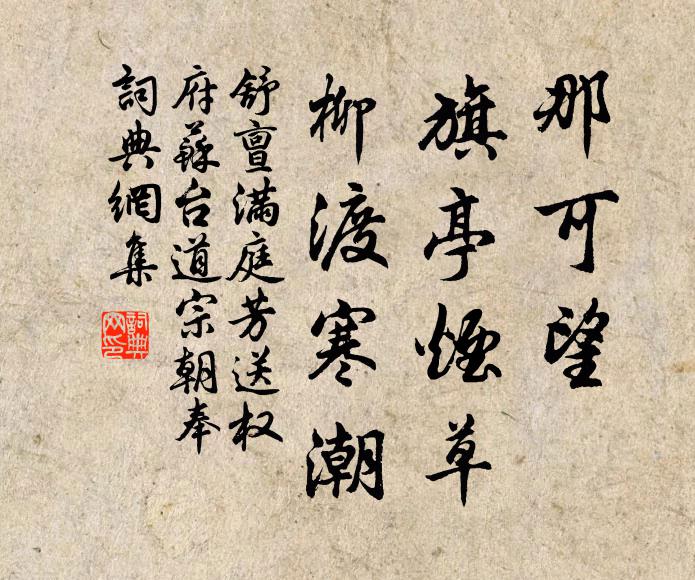 那可望
旗亭煙草
柳渡寒潮
舒亶滿庭芳送权
府蘇台道宗朝奉
詞典網集
詞典网印